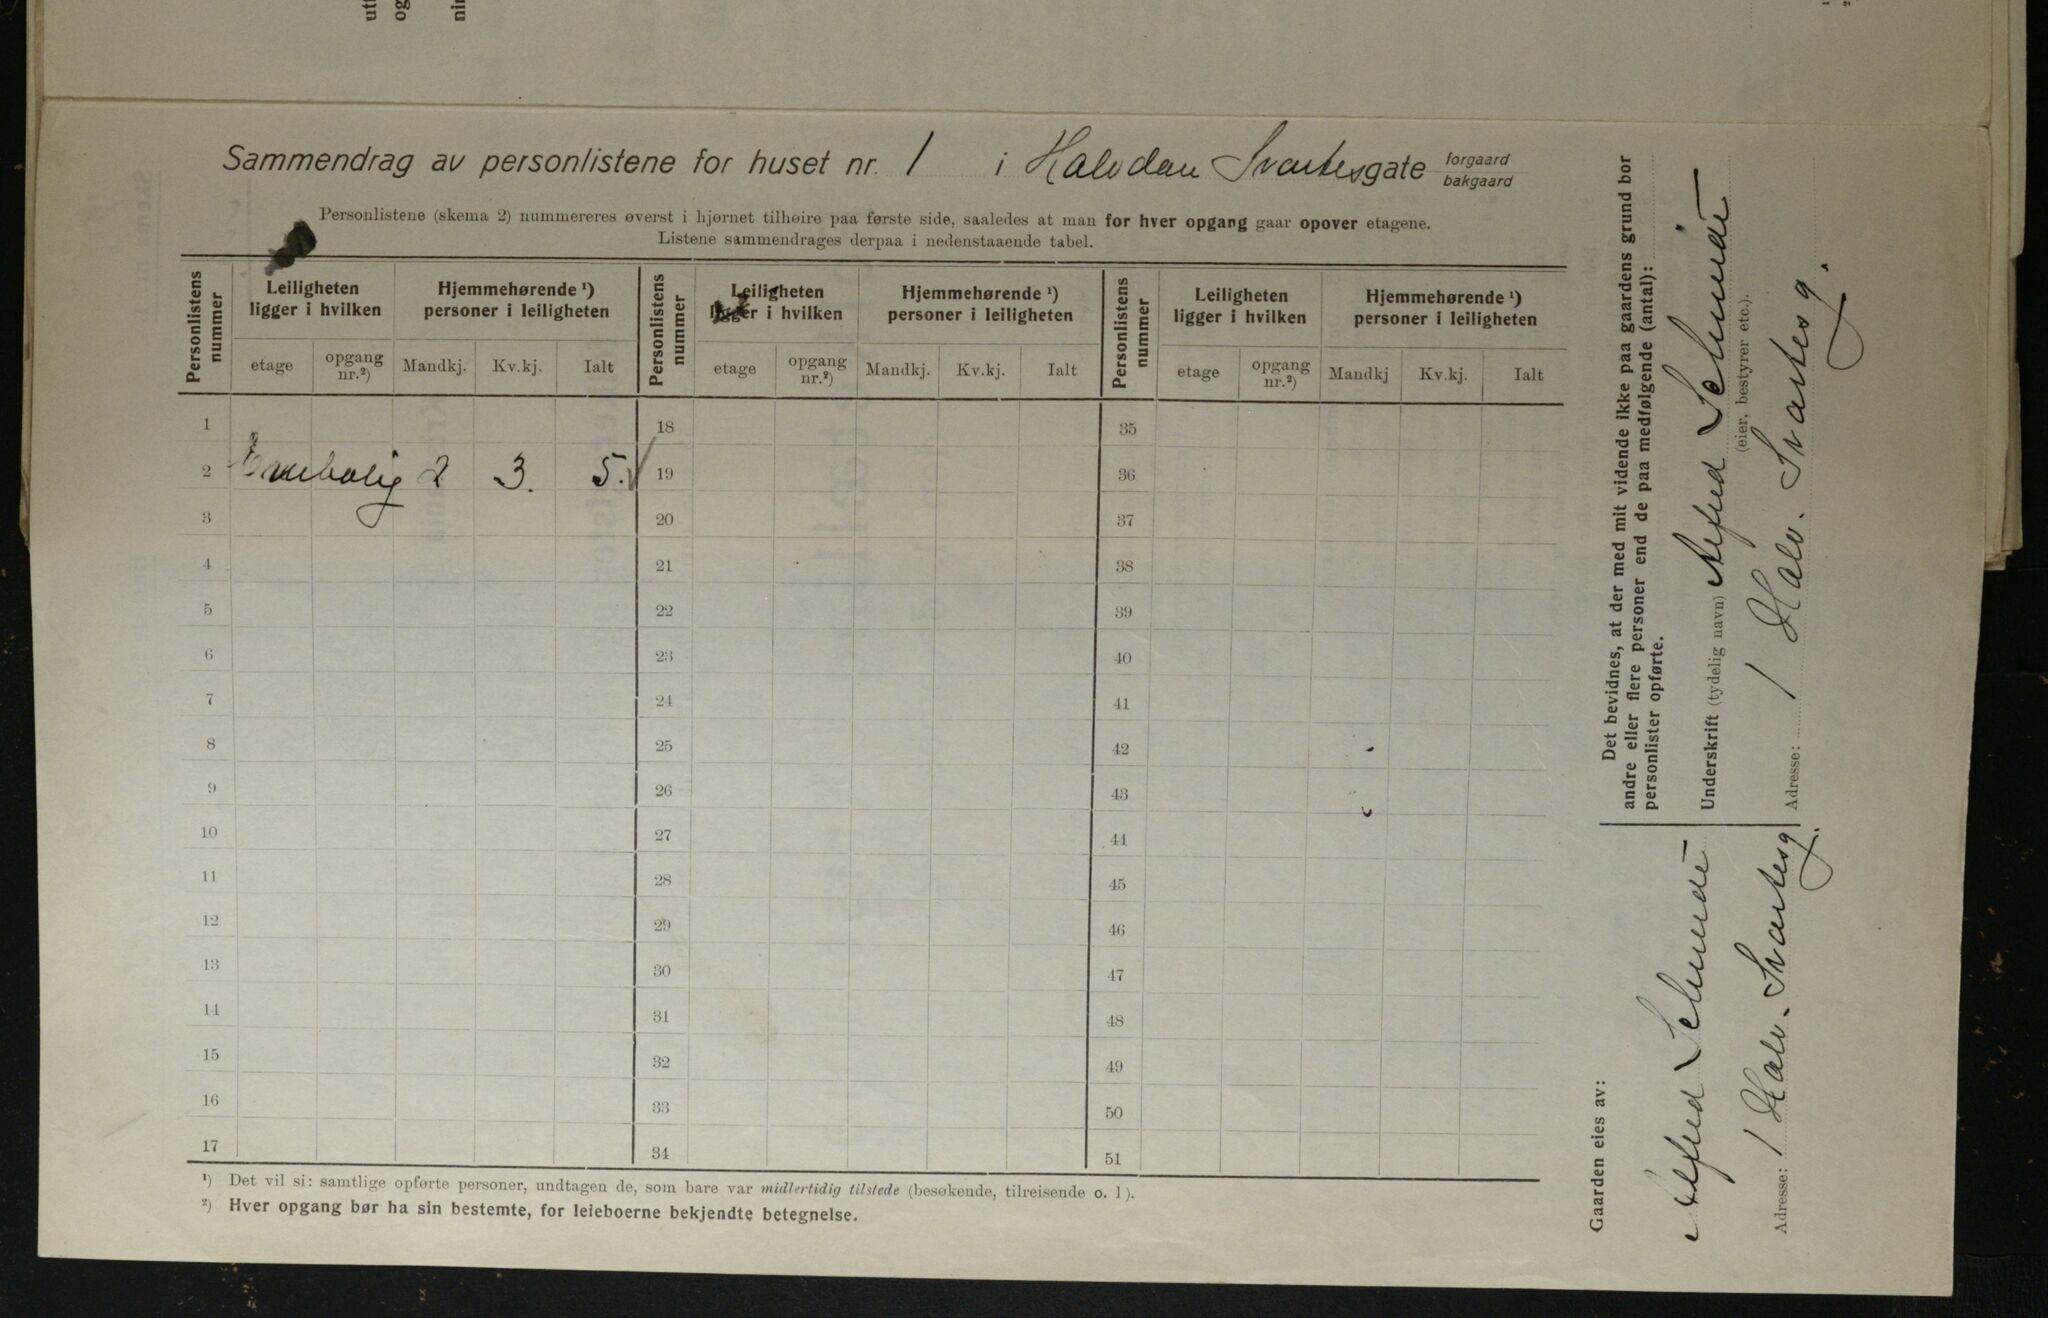 Sammendrag av personlistene for huset nr. 1 i Halvdan Svartesgate forgaard bakgaard
Personlistene (skema 2) nummereres øverst i hjørnet tilhøire paa første side, saaledes at man for hver opgang gaar opover etagene.
Listene sammendrages derpaa i nedenstaaende tabel.
Personlistens nummer
Leiligheten ligger i hvilken
Hjemmehørende ¹) personer i leiligheten
Personlistens nummer
Leiligheten ligger i hvilken
Hjemmehørende ¹) personer i leiligheten
Personlistens nummer
Leiligheten ligger i hvilken
Hjemmehørende ¹) personer i leiligheten
etage opgang nr.²) Mandkj. Kv.kj. Ialt etage opgang nr.²) Mandkj. Kv.kj. Ialt etage opgang nr.²) Mandkj Kv.kj. Ialt
1 18 35
2 Enebolig 2 3. 5. 19 36
3 20 37
4 21 38
5 22 39
6 23 40
7 24 41
8 25 42
9 26 43
10 27 44
11 28 45
12 29 46
13 30 47
14 31 48
15 32 49
16 33 50
17 34 51
¹) Det vil si: samtlige opførte personer, undtagen de, som bare var midlertidig tilstede (besøkende, tilreisende o. l).
²) Hver opgang bør ha sin bestemte, for leieboerne bekjendte betegnelse.
Det bevidnes, at der med mit vidende ikke paa gaardens grund bor
andre eller flere personer end de paa medfølgende (antal):
personlister opførte.
Underskrift (tydelig navn) Alfred Schmidt
(eier, bestyrer etc.).
Adresse: 1 Halv. Svartesg.
Gaarden eies av:
Alfred Schmidt
Adresse: 1 Halv. Svartesg.